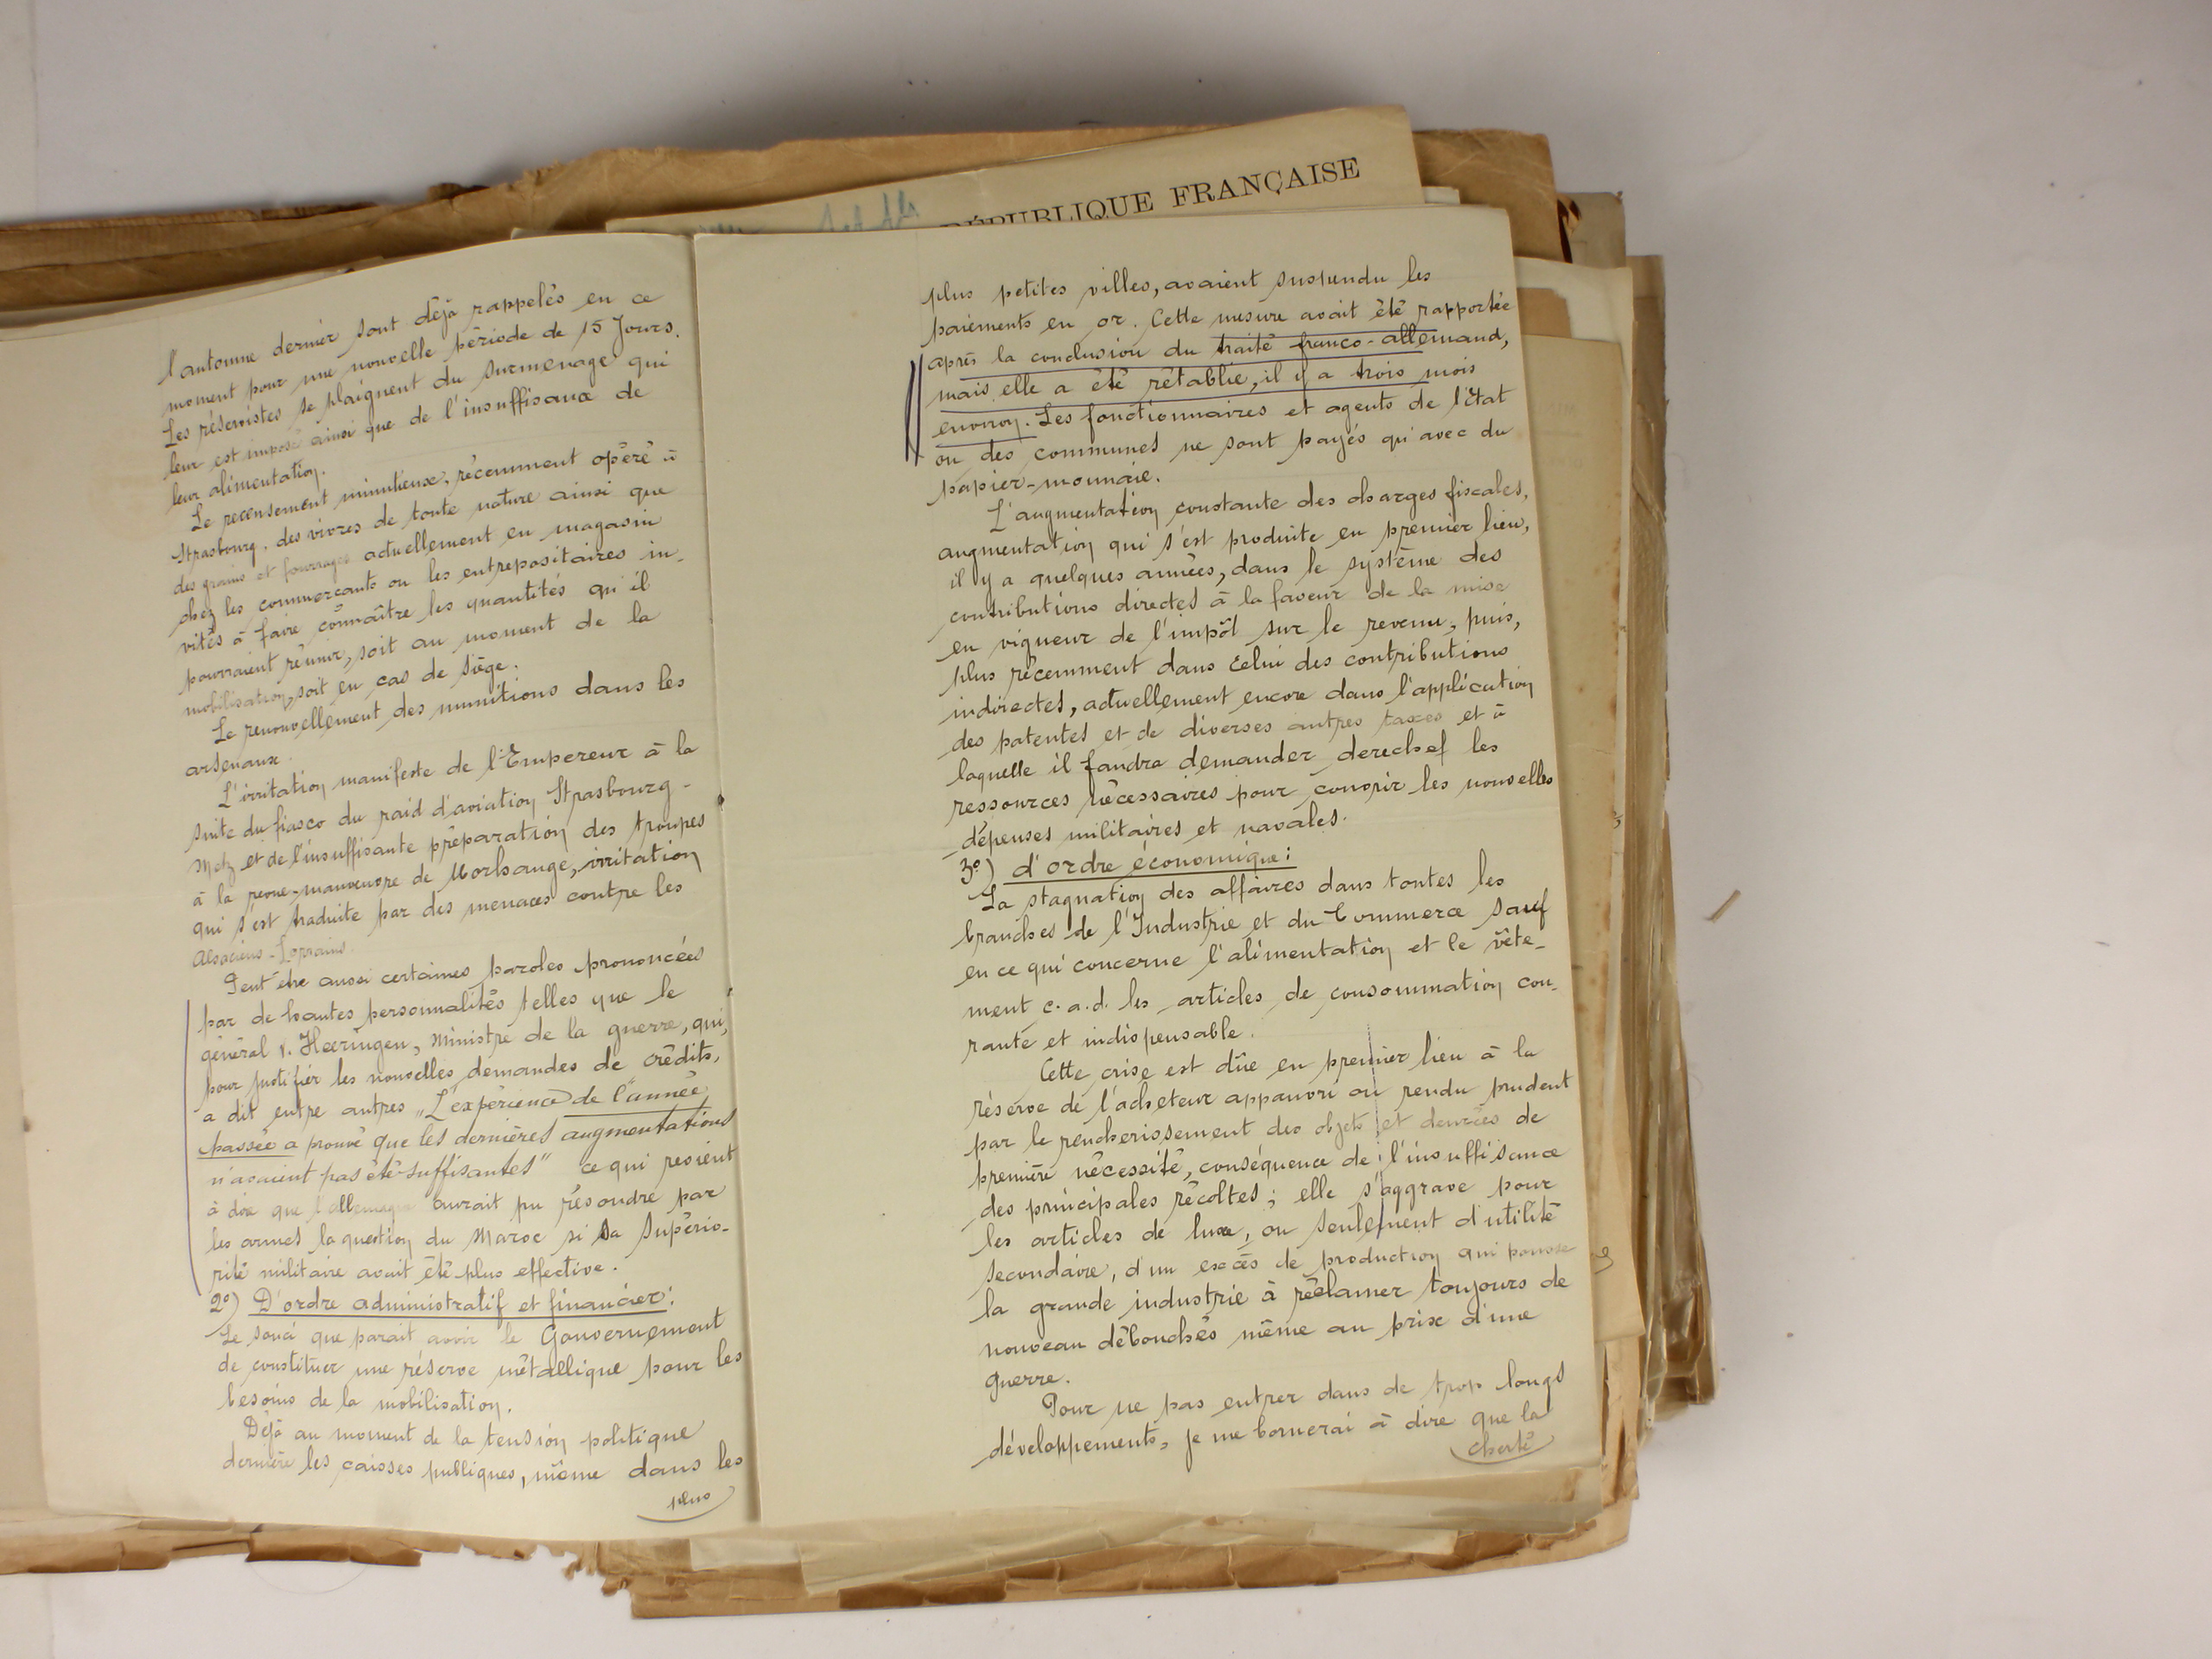 RÉPUBLIQUE FRANÇAISE
l'automne dernier sont déjà rappelés en ce
moment pour une nouvelle période de 15 Jours.
Les réservistes se plaignent du surmenage qui
leur est imposé ainsi que de l'insuffisance de
leur alimentation.
Le recensement minutieux, récemment opéré à
Strasbourg, des vivres de toute nature ainsi que
des grains et fourrages actuellement en magasin
chez les commerçants ou les entrepositaires in-
vités à faire connaître les quantités qu'il
pourraient réunir, soit au moment de la
mobilisation, soit en cas de siège.
Le renouvellement des munitions dans les
arsenaux.
L'irritation manifeste de l'Empereur à la
suite du fiasco du raid d'aviation Strasbourg-
Metz et de l'insuffisante préparation des troupes
à la revue-manœuvre de Morhange, irritation
qui s'est traduite par des menaces contre les
Alsaciens-Lorrains.
Peut être aussi certaines paroles prononcées
par de hautes personnalités telles que le
général v. Heeringen, Ministre de la guerre, qui,
pour justifier les nouvelles demandes de crédits,
a dit entre autres „L'expérience de l'année
passée a prouvé que les dernières augmentations
n'avaient pas été suffisantes" ce qui revient
à dire que l'allemagne aurait pu résoudre par
les armes la question du Maroc si sa supério-
rité militaire avait été plus effective.
2º) D'ordre administratif et financier:
Le souci que parait avoir le Gouvernement
de constituer une réserve métallique pour les
besoins de la mobilisation.
Déjà au moment de la tension politique
dernière les caisses publiques, même dans les
plus
plus petites villes, avaient suspendu les
paiements en or. Cette mesure avait été rapportée
après la conclusion du traité franco-allemand,
mais elle a été rétablie, il y a trois mois
environ. Les fonctionnaires et agents de l'État
ou des communes ne sont payés qu'avec du
papier-monnaie.
L'augmentation constante des charges fiscales,
augmentation qui s'est produite en premier lieu,
il y a quelques années, dans le système des
contributions directes à la faveur de la mise
en vigueur de l'impôt sur le revenu, puis,
plus récemment dans celui des contributions
indirectes, actuellement encore dans l'application
des patentes et de diverses autres taxes et à
laquelle il faudra demander derechef les
ressources nécessaires pour couvrir les nouvelles
dépenses militaires et navales.
3º) d'ordre économique:
La stagnation des affaires dans toutes les
branches de l'Industrie et du Commerce sauf
en ce qui concerne l'alimentation et le vête-
ment c.a.d. les articles de consommation cou-
rante et indispensable.
Cette crise est dûe en premier lieu à la
réserve de l'acheteur appauvri ou rendu prudent
par le renchérissement des objets et denrées de
première nécessité, conséquence de l'insuffisance
des principales récoltes; elle s'aggrave pour
les articles de luxe, ou seulement d'utilité
secondaire, d'un excès de production qui pousse
la grande industrie à réclamer toujours de
nouveau débouchés même au prix d'une
guerre.
Pour ne pas entrer dans de trop longs
développements, je me bornerai à dire que la
cherté